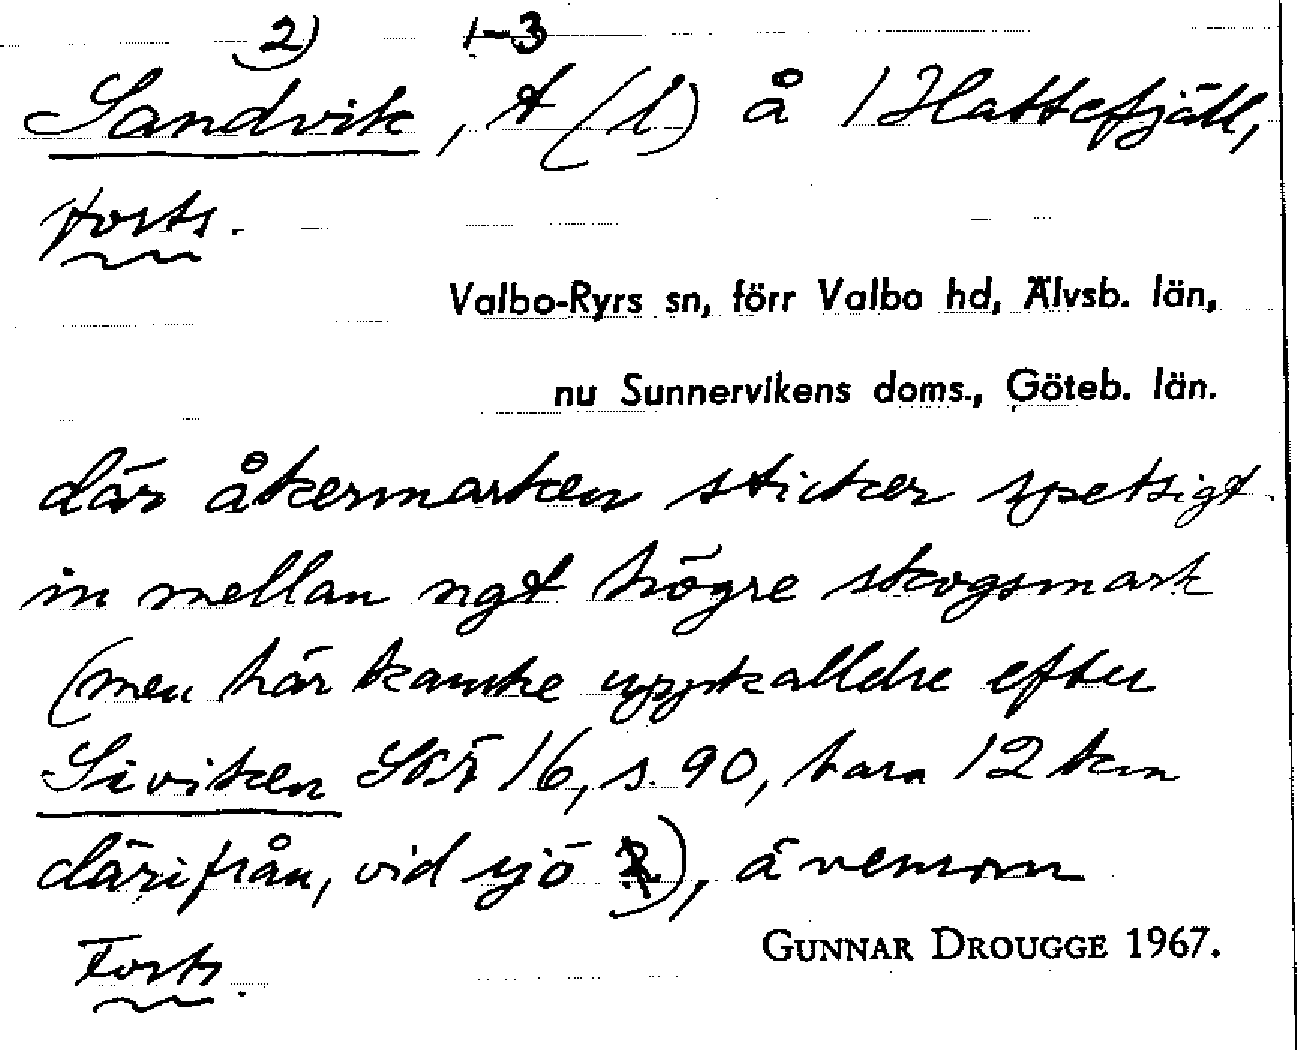 2) 1-3
Sandvik, t (l) å 1 Hattefjäll,
forts.
Valbo-Ryrs sn, förr Valbo hd, Älvsb. län,
nu Sunnervikens doms., Göteb. län.
där åkermarken sticker spetsigt
in mellan ngt högre skogsmark
(men här kanske uppkallelse efter
Siviken SOÄ 16, s. 90, bara 12 km
därifrån, vid sjö), ävensom
Forts.
GUNNAR DROUGGE 1967.